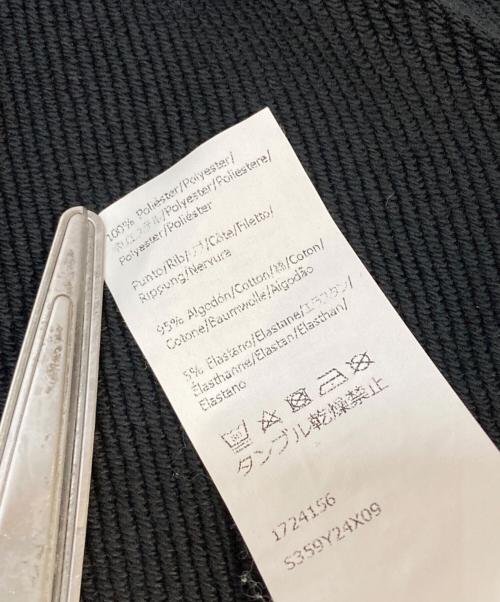 100% Poliéster/Polyester/
ポリエステル/Polyester/Poliestere/
Polyester/Poliéster
Punto/Rib/リブ/Côte/Filetto/
Ripsung/Nervura
95% Algodón/Cotton/綿/Coton/
Cotone/Baumwolle/Algodão
5% Elastano/Elastane/エラスタン/
Élasthanne/Elastan/Elasthan/
Elastano
タンブル乾燥禁止
1724156
S359Y24X09